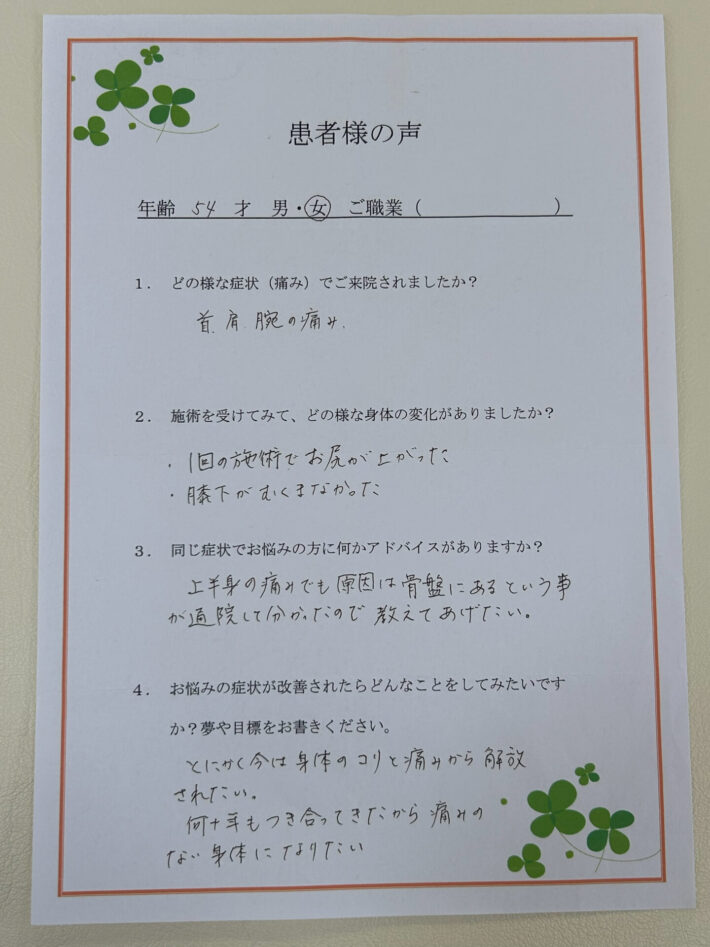 患者様の声
年齢 54 才 男・女 ご職業（ ）
１． どの様な症状（痛み）でご来院されましたか？
首、肩、腕の痛み、
２． 施術を受けてみて、どの様な身体の変化がありましたか？
・1回の施術でお尻が上がった
・膝下がむくまなかった
３． 同じ症状でお悩みの方に何かアドバイスがありますか？
上半身の痛みでも原因は骨盤にあるという事
が通院して分かったので教えてあげたい。
４． お悩みの症状が改善されたらどんなことをしてみたいです
か？夢や目標をお書きください。
とにかく今は身体のコリと痛みから解放
されたい。
何十年もつき合ってきたから痛みの
ない身体になりたい